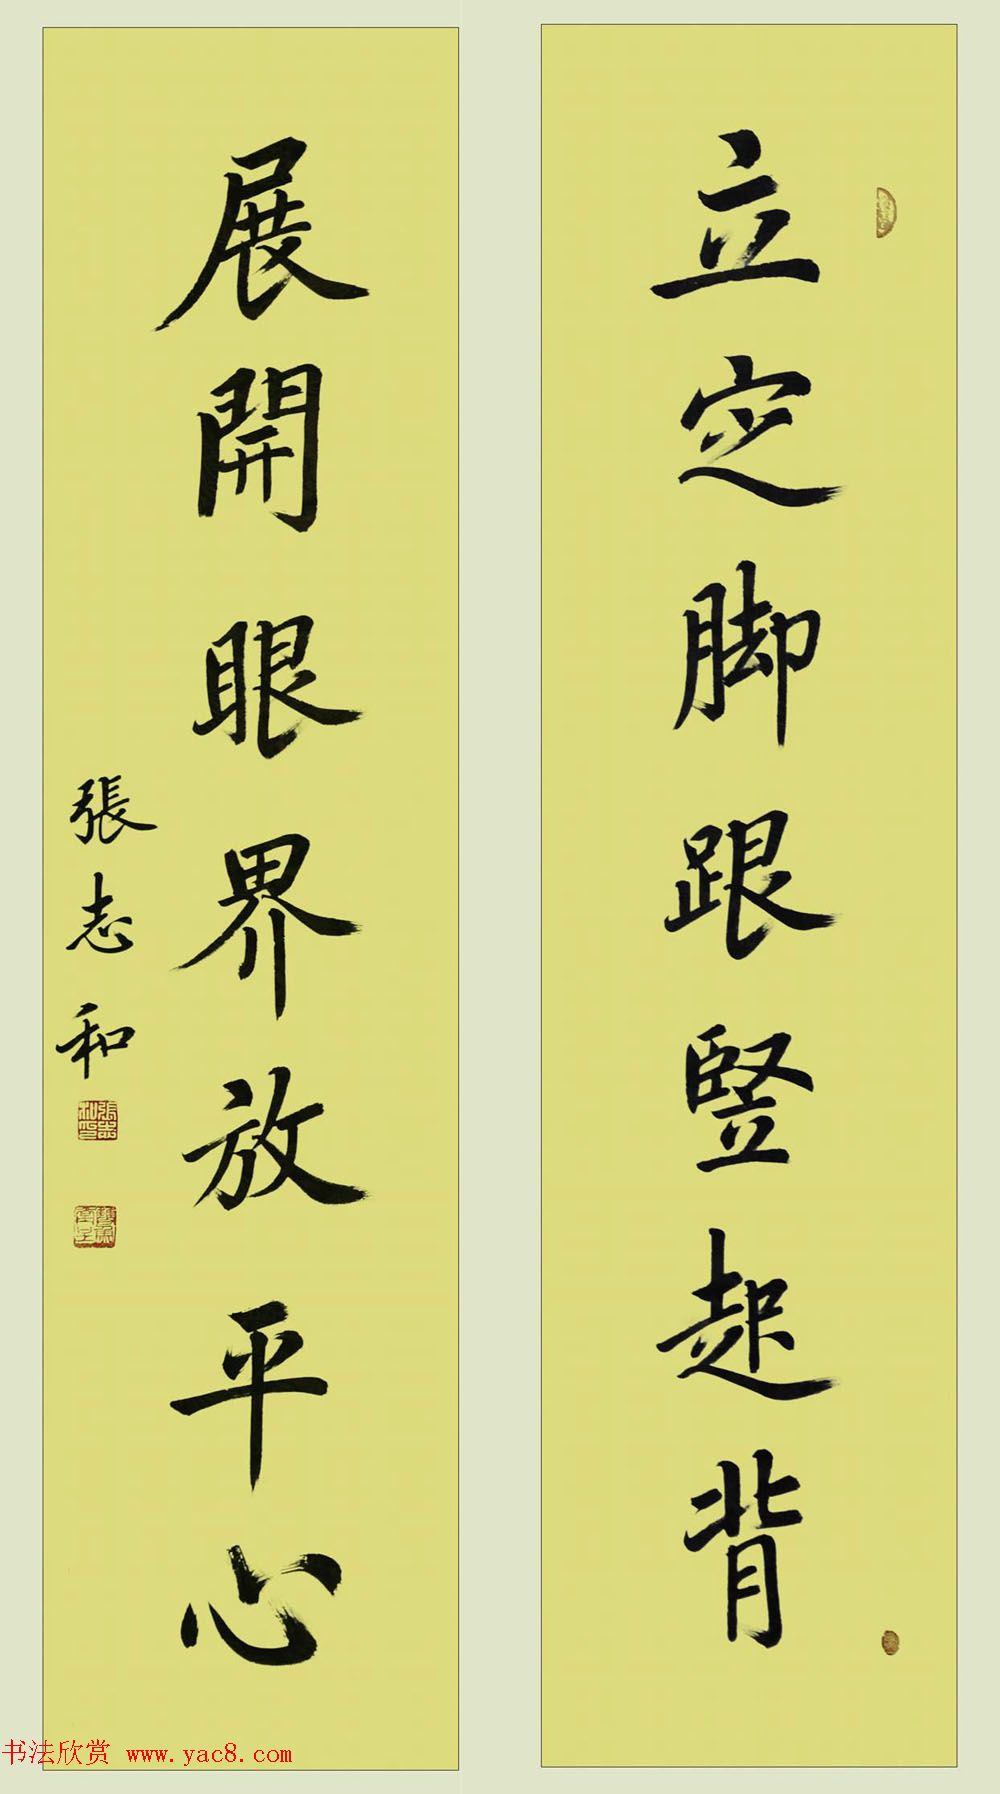 立定脚跟竖起背
展開眼界放平心
張志和
书法欣赏 www.yac8.com